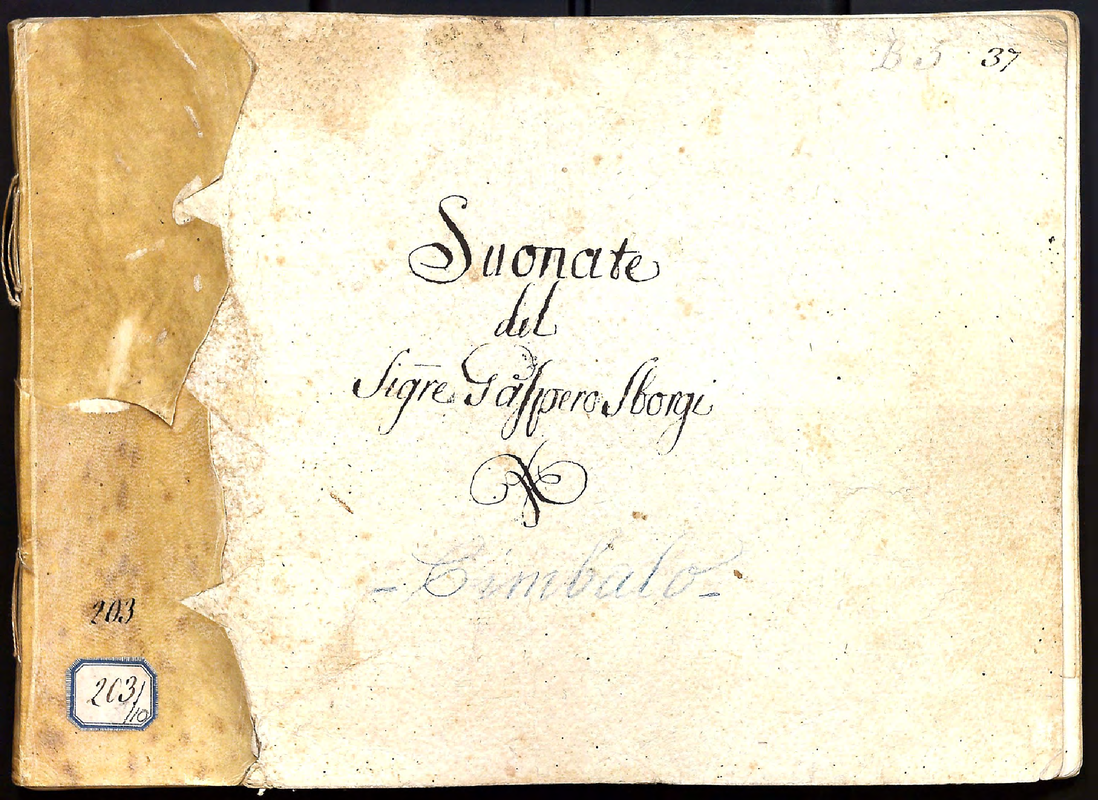 B 5 37
Suonate
del
Sig̅re Gaspero Sborgi
- Cimbalo -
203
203/10